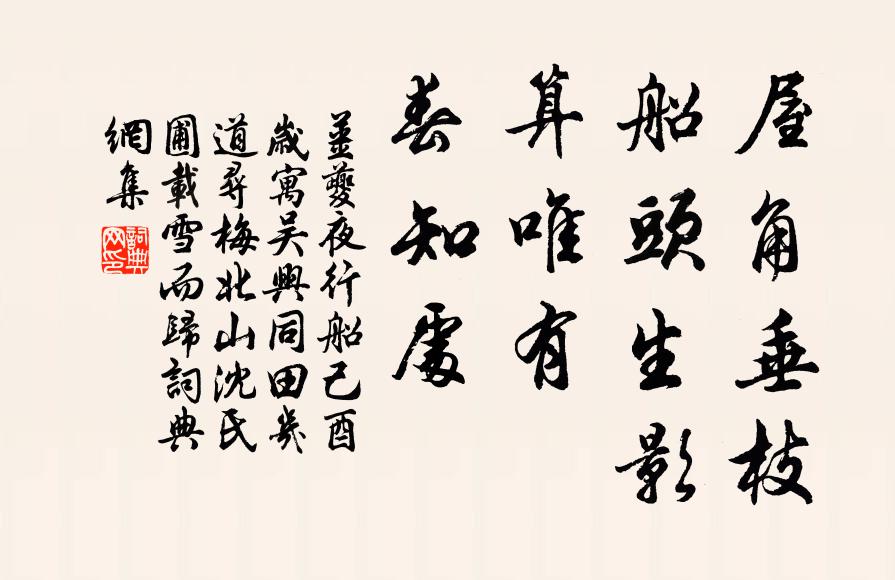 屋角垂枝
船頭生影
算唯有
春知處
薑夔夜行船己酉
歲寓吴興同田幾
道尋梅北山沈氏
圃載雪而歸詞典
網集
詞典
网印